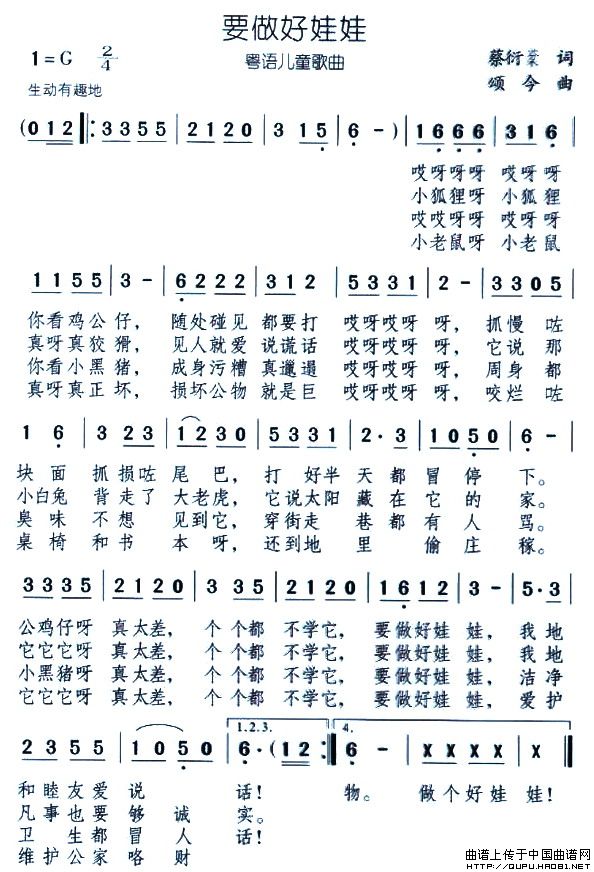 要做好娃娃
1=G 2/4
粤语儿童歌曲
蔡衍棻 词
生动有趣地
颂今 曲
(0 1 2 ‖: 3 3 5 5 | 2 1 2 0 | 3 1 5 | 6 - ) | 1 6 6 6 | 3 1 6 |
哎呀呀呀 哎呀呀
小狐狸呀 小狐狸
哎哎呀呀 哎呀呀
小老鼠呀 小老鼠
1 1 5 5 | 3 - | 6 2 2 2 | 3 1 2 | 5 3 3 1 | 2 - | 3 3 0 5 |
你看鸡公仔， 随处碰见 都要打 哎呀哎呀 呀， 抓慢 咗
真呀真狡猾， 见人就爱 说谎话 哎呀哎呀 呀， 它说 那
你看小黑猪， 成身污糟 真邋遢 哎呀哎呀 呀， 周身 都
真呀真正坏， 损坏公物 就是巨 哎呀哎呀 呀， 咬烂 咗
1 6 | 3 2 3 | 1 2 3 0 | 5 3 3 1 | 2 · 3 | 1 0 5 0 | 6 - |
块面 抓损咗 尾巴， 打好半天都冒停下。
小白兔 背走了 大老虎， 它说太阳藏在它的家。
臭味 不想 见到它， 穿街走巷都有人骂。
桌椅 和书 本呀， 还到地里偷庄稼。
3 3 3 5 | 2 1 2 0 | 3 3 5 | 2 1 2 0 | 1 6 1 2 | 3 - | 5 · 3 |
公鸡仔呀 真太差， 个个都 不学它， 要做好娃 娃， 我地
它它它呀 真太差， 个个都 不学它， 要做好娃 娃， 我地
小黑猪呀 真太差， 个个都 不学它， 要做好娃 娃， 洁净
它它它呀 真太差， 个个都 不学它， 要做好娃 娃， 爱护
1.2.3. 4.
2 3 5 5 | 1 0 5 0 | 6 · (1 2 :‖ 6 - | X X X X | X - ‖
和睦友爱 说 话！ 物。 做个好娃 娃！
凡事也要 够诚 实。
卫生都冒 人 话！
维护公家 咯财
曲谱上传于中国曲谱网
http://QUPU.HAO81.NET